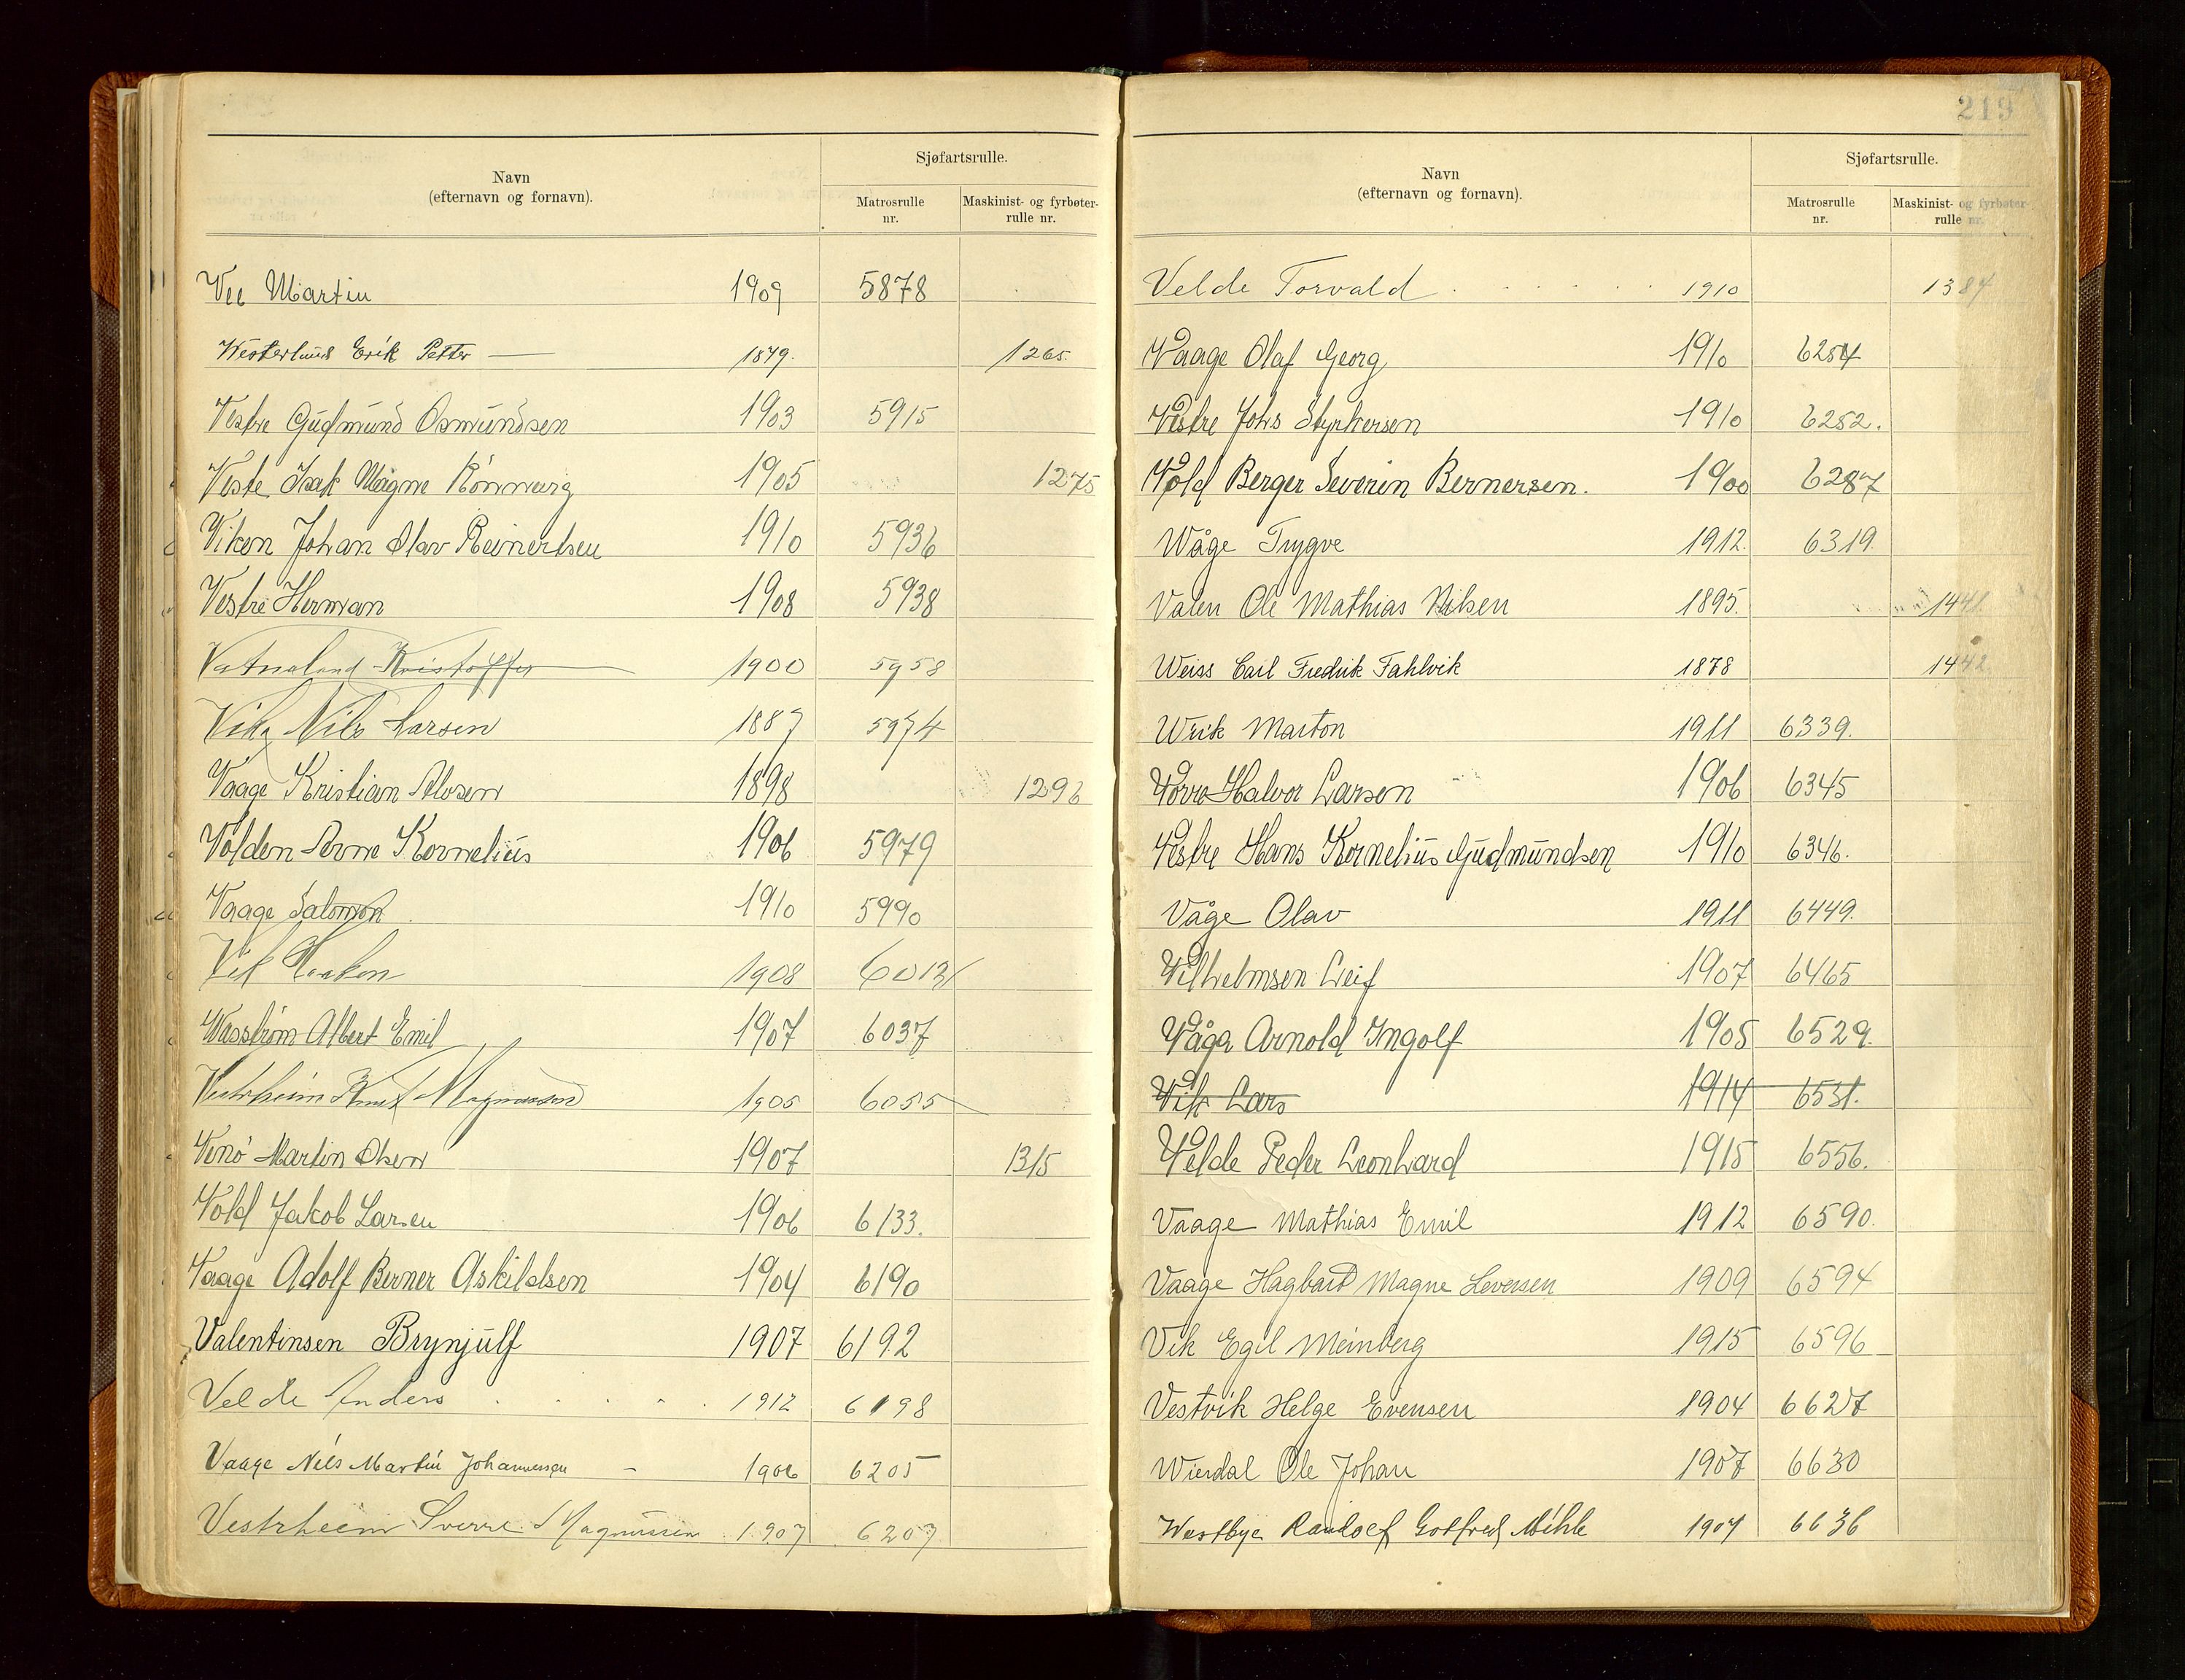 Navn
(efternavn og fornavn).
Sjøfartsrulle.
Matrosrulle
nr.
Maskinist- og fyrbøter-
rulle nr.
Vee Martin 1909 5878
Westerlund Erik Petter — 1879. 1265.
Vestre Gudmund Osmundsen 1903 5915
Veste Isak Magne 1905 1275
Viken Johan Olav Reinertsen 1910 5936
Vestre Herman 1908 5938
Vatnaland Kristoffer 1900 5958
Vika Nils Larsen 1887 5974
Vaage Kristian Alvsen 1898 1296
Volden Arne Kornelius 1906 5979
Vaage Salomon 1910 5990
Vik Haakon 1908 6013
Wasstrøm Albert Emil 1907 6037
Vestrheim Knut Magnusson 1905 6055
Venø Martin Olsen 1907 1315
Vold Jakob Larsen 1906 6133.
Vaage Adolf Berner Askildsen 1904 6190
Valentinsen Brynjulf 1907 6192
Velde Anders 1912 6198
Vaage Nils Martin Johannessen – 1906 6205
Vestrheim Sverre Magnussen 1907 6207
219
Navn
(efternavn og fornavn).
Sjøfartsrulle.
Matrosrulle
nr.
Maskinist- og fyrbøter-
rulle nr.
Velde Torvald 1910 1384
Waage Olaf Georg 1910 6254
Vestre Johs Styrkersen 1910 6252.
Wold Berger Severin Bernersen. 1900 6287
Wåge Trygve 1912. 6319.
Valen Ole Mathias Nilsen 1895. 1441.
Weiss Carl Fredrik Fahlvik 1878 1442
Wrik Marton 1911 6339.
Halvor Larsen 1906 6345
Vestre Hans Kornelius Gudmundsen 1910 6346.
Våge Olav 1911 6449.
Vilhelmsen Leif 1907 6465
Våga Arnold Ingolf 1905 6529.
Vik Lars 1914 6531.
Velde Peder Leonhard 1915 6556.
Vaage Mathias Emil 1912 6590.
Vaage Hagbart Magne Seversen 1909 6594
Vik Egil Meinberg 1915 6596
Vestvik Helge Evensen 1904 6627
Wierdal Ole Johan 1907 6630
Westbye Randolf Gotfred Mihle 1907 6636